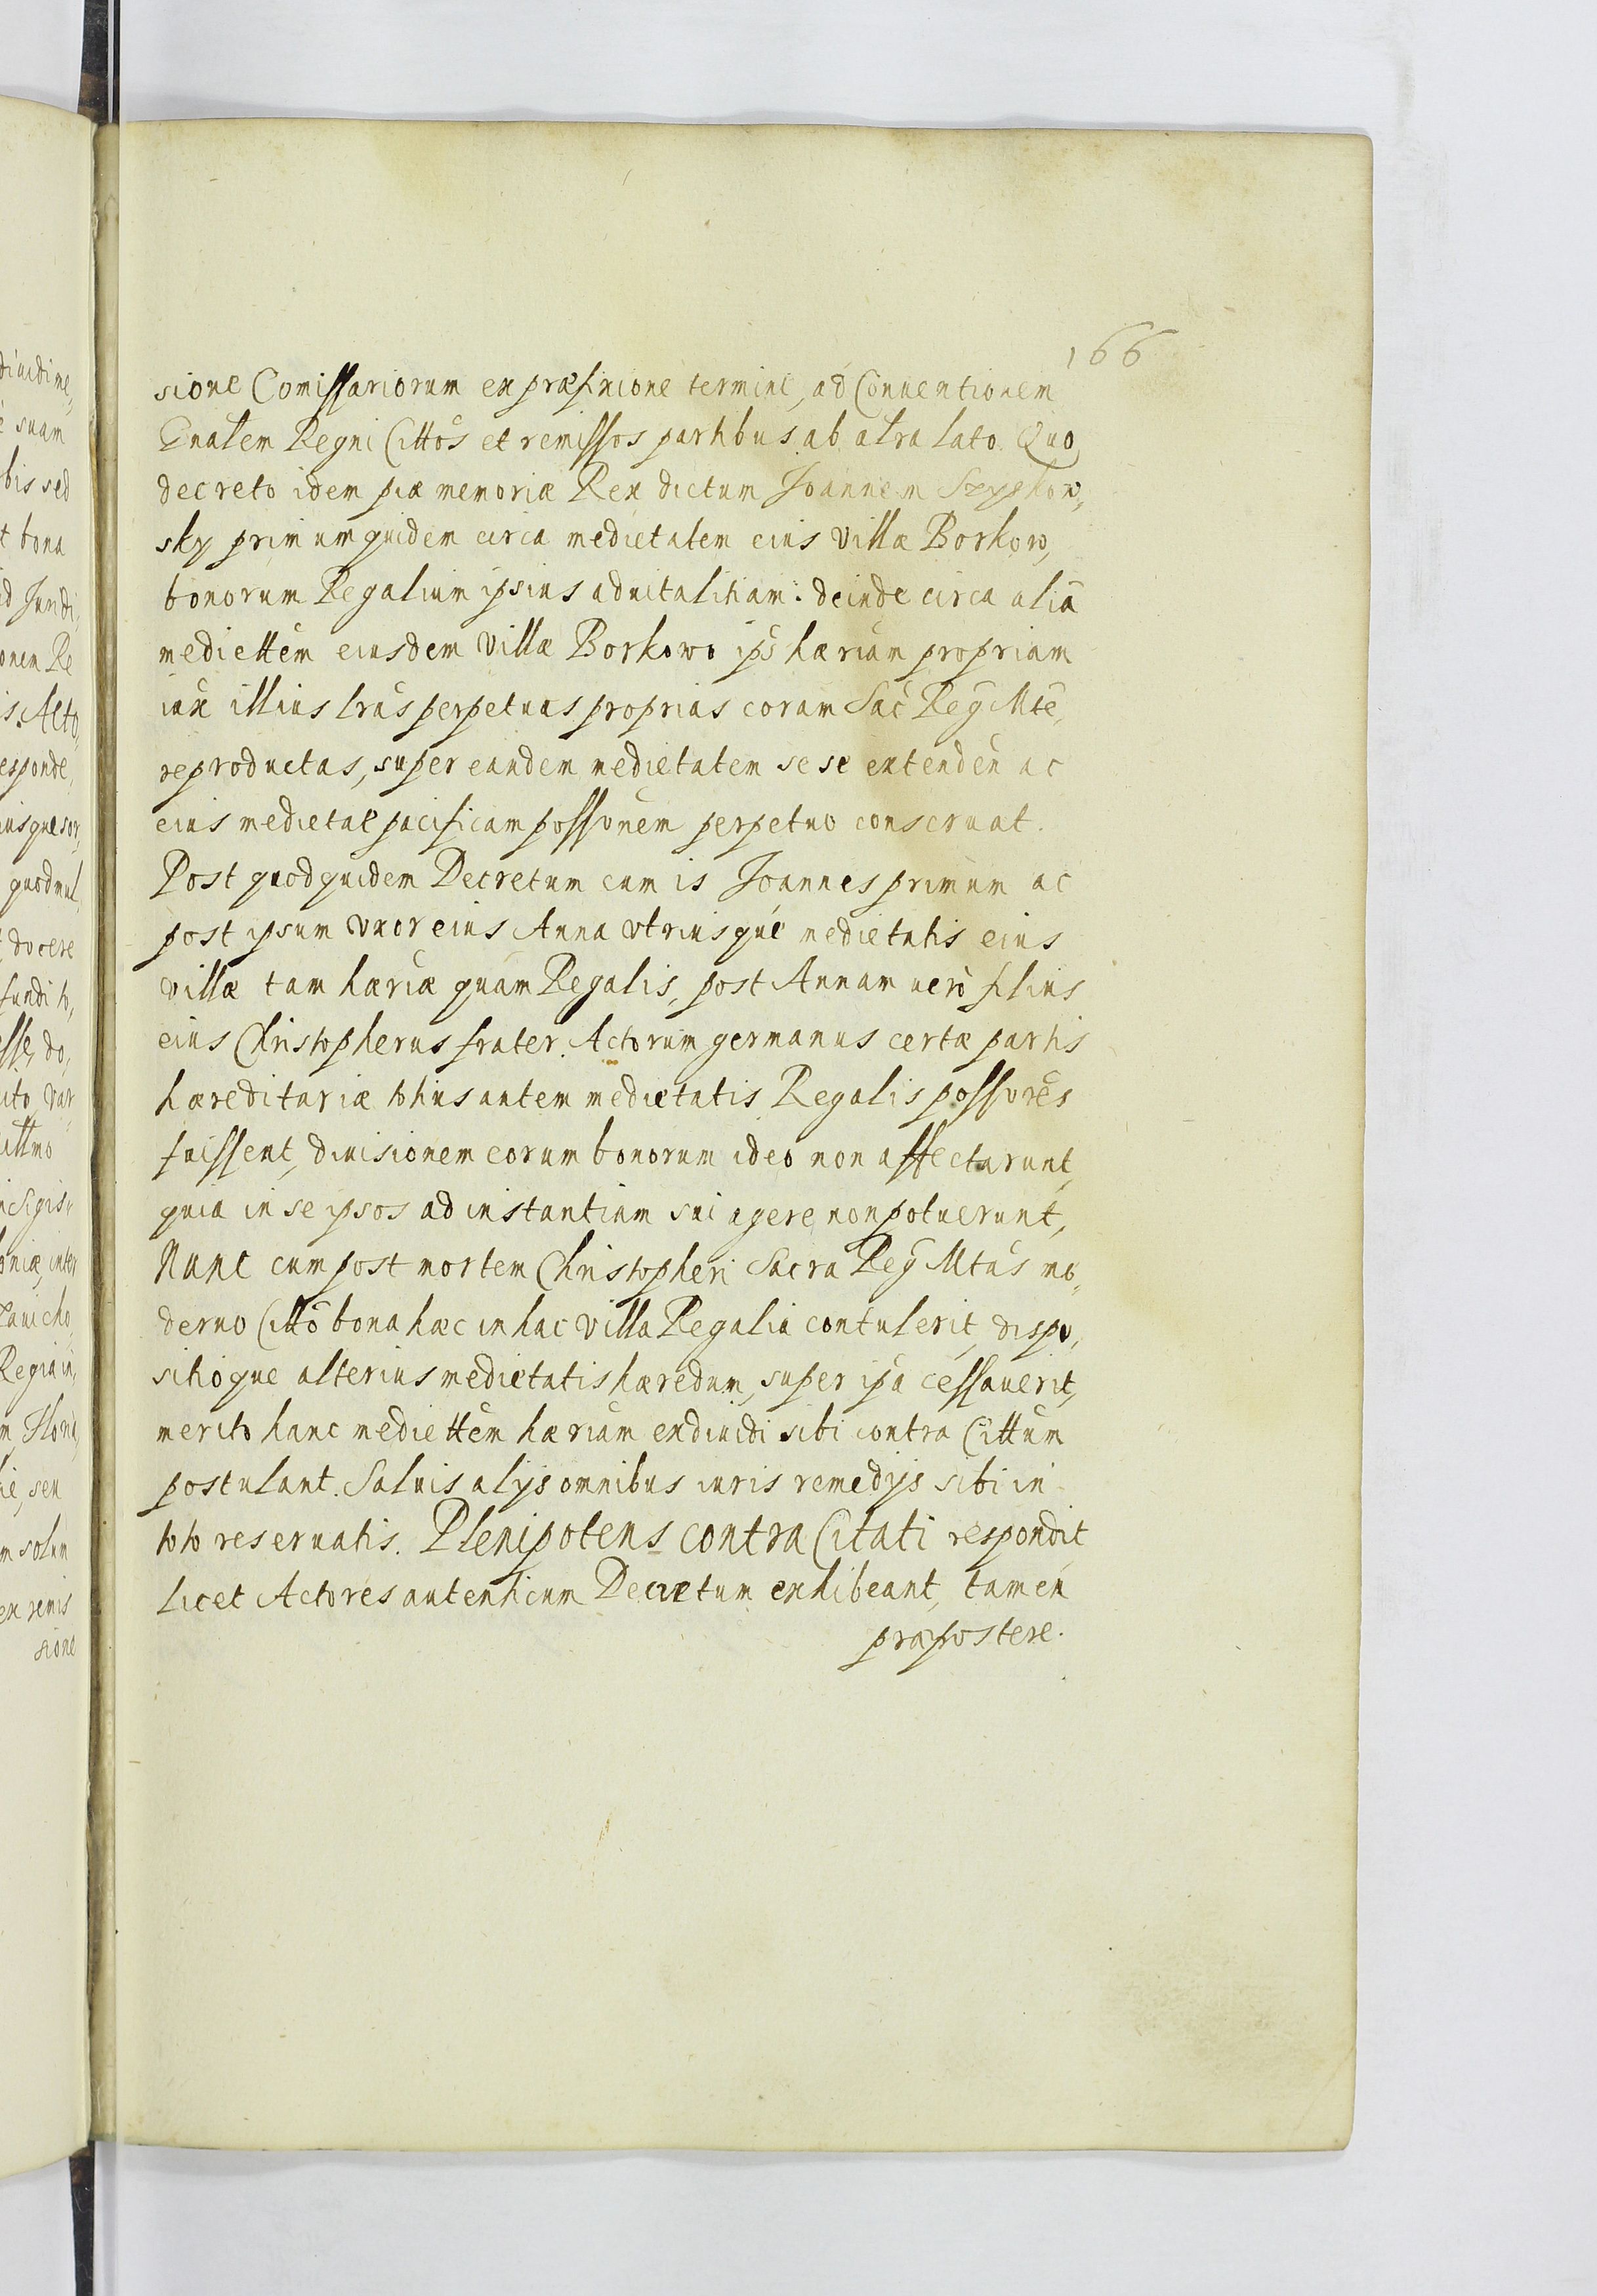 166
sione Comissariorum ex præfixione termini, ad Conuentionem
Gnalem Regni Cittos et remissos partibus ab altra lato. Quo
decreto idem piæ memoriæ Rex dictum Joannem Szyszkow,
sky primum quidem circa medietatem eius villæ Borkow,
bonorum Regalium ipsius aduitalitiam: deinde circa aliā
mediettem eiusdem villæ Borkowo ips hæriam propriam
iux illius lras perpetuas proprias coram Sac Reg Mte,
reproductas, super eandem medietatem se se extenden ac
eius medietat pacificam possonem perpetuo conseruat.
Post quod quidem Decretum cum is Joannes primum ac
post ipsum vxor eius Anna vtriusque medietatis eius
villæ tam hæriæ quam Regalis, post Annam uero filius
eius Christopherus frater Actorum germanus certæ partis
hæreditariæ totius autem medietatis Regalis possores
fuissent, diuisionem eorum bonorum ideo non affectarunt,
quia in se ipsos ad instantiam sui agere non potuerunt,
Nunc cum post mortem Christopheri Sacra Reg Mtas mo,
derno Citto bona hæc in hac villa Regalia contulerit, dispo,
sitioque alterius medietatis hæredum, super ipa cessauerit,
merito hanc mediettem hæriam exdiuidi sibi contra Cittum
postulant. Saluis alijs omnibus iuris remedijs sibi in
toto reseruatis. Plenipotens contra Citati respondit
licet Actores autenticum Decretum exhibeant, tamen
præpostere.
diuidi me,
suam
bis sed
t bona
d Juridi,
onem Re
is. Acto,
esponde,
iusque sor,
quod nul,
docere
fundi to,
esse, do,
ittmo
Regia in
solum
ex remis
sione